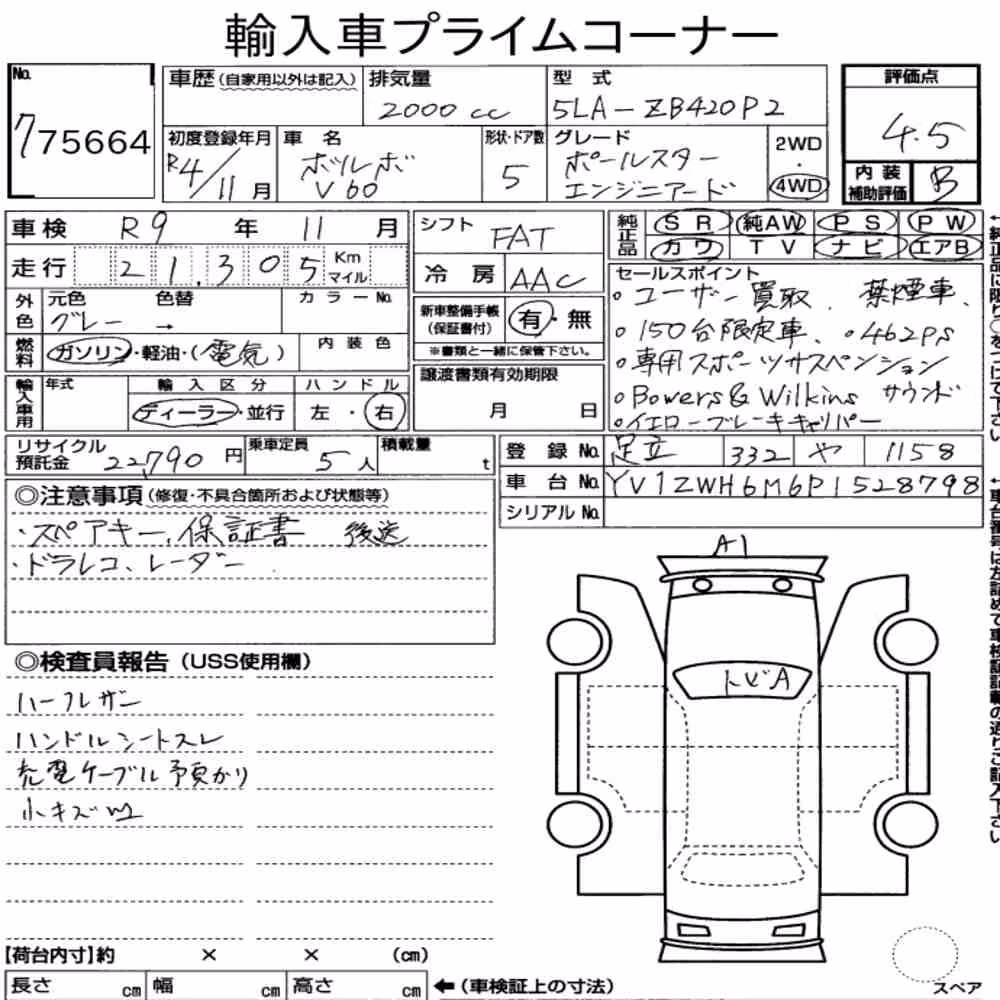 輸入車プライムコーナー
No. 775664
車歴(自家用以外は記入) 排気量 2000cc 型式 5LA-ZB420P2
評価点 4.5
初度登録年月 R4/11月 車名 ボルボ V60 形状・ドア数 5 グレード ポールスター エンジニアード 2WD・4WD
内装補助評価 B
車検 R9年 11月
走行 21,305 Km マイル
シフト FAT
冷房 AAC
純正品 SR 純AW PS PW
カワ TV ナビ エアB
外色 元色 グレー 色替 → カラーNo.
燃料 ガソリン・軽油・(電気) 内装色
新車整備手帳(保証書付) 有・無
※書類と一緒に保管下さい。
セールスポイント
。ユーザー買取、禁煙車、
。150台限定車、。462ps
。専用スポーツサスペンション
。Bowers&Wilkins サウンド
。イエローブレーキキャリパー
輸入車用 年式 輸入区分 ディーラー・並行 ハンドル 左・右
譲渡書類有効期限 月 日
リサイクル預託金 22,790円 乗車定員 5人 積載量 t
登録No. 足立 332 や 1158
車台No. YV1ZWH6M6P1528798
シリアルNo.
◎注意事項(修復・不具合箇所および状態等)
・スペアキー、保証書 後送
・ドラレコ、レーダー
◎検査員報告(USS使用欄)
ハーフレザー
ハンドルシートスレ
充電ケーブル預かり
小キズ凹
A1
トビA
【荷台内寸】約 × × (cm)
長さ cm 幅 cm 高さ cm ←(車検証上の寸法)
スペア
←純正品に限り○をつけて下さい
←車台番号は左詰めで車検証記載の通りご記入下さい